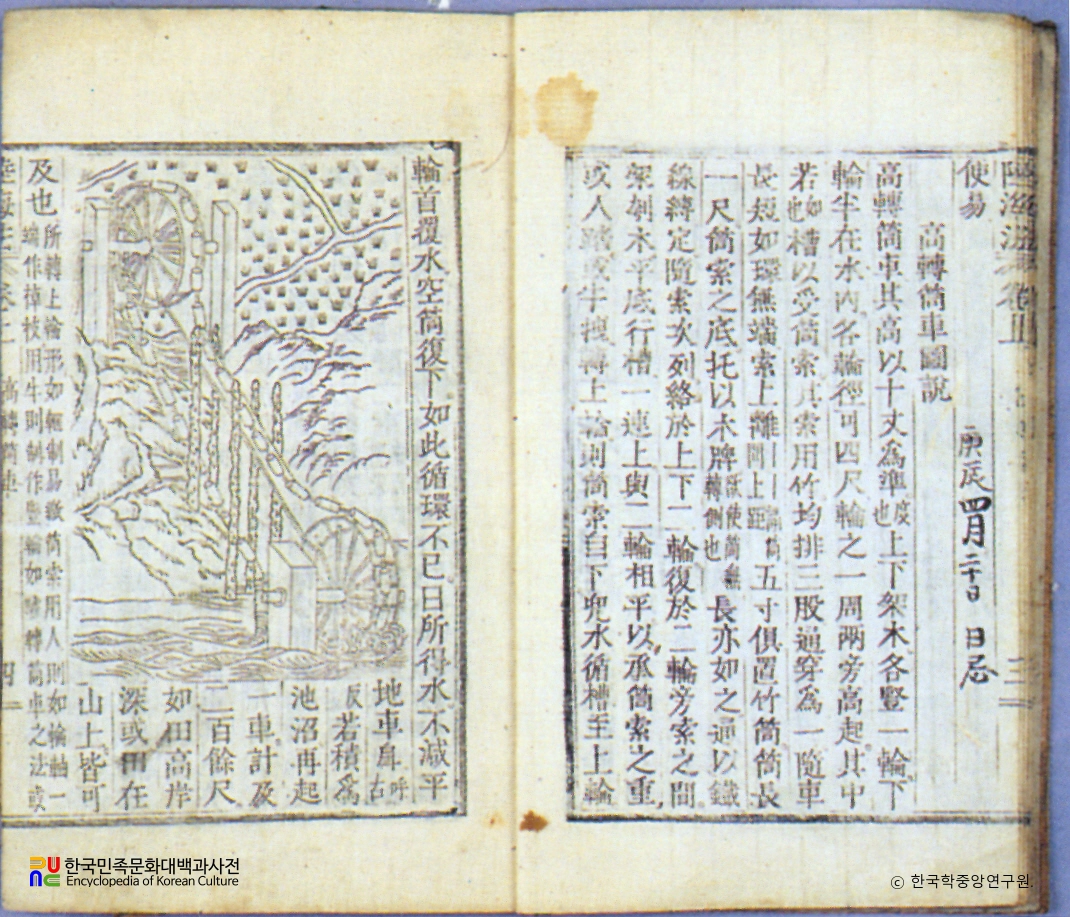 使易
庚辰四月二十日 日忌
高轉筒車圖說
高轉筒車其高以十丈為準度也上下架木各竪一輪下
輪半在水內各輪徑可四尺輪之一周兩旁高起其中
若如也槽以受筒索其索用竹均排三股通穿為一隨車
長短如環無端索上離間上距五寸俱置竹筒筒長
一尺筒索之底托以木牌轉側也長亦如之通以鐵
線縛定隨索次列絡於上下二輪復於二輪旁索之間
架刳木平底行槽一連上與二輪相平以承筒索之重
或人踏或牛拽轉上輪則筒索自下兜水循槽至上輪
輪首覆水空筒復下如此循環不已日所得水不減平
地車戽
若積為
池沼再起
一車計及
二百餘尺
如田高岸
深或田在
山上皆可
及也所轉上輪形如制易繳筒索用人則如輪軸一
端作掉枝用牛則制作竪輪如轉筒車之法或
高轉筒車
한국민족문화대백과사전
Encyclopedia of Korean Culture
ⓒ 한국학중앙연구원